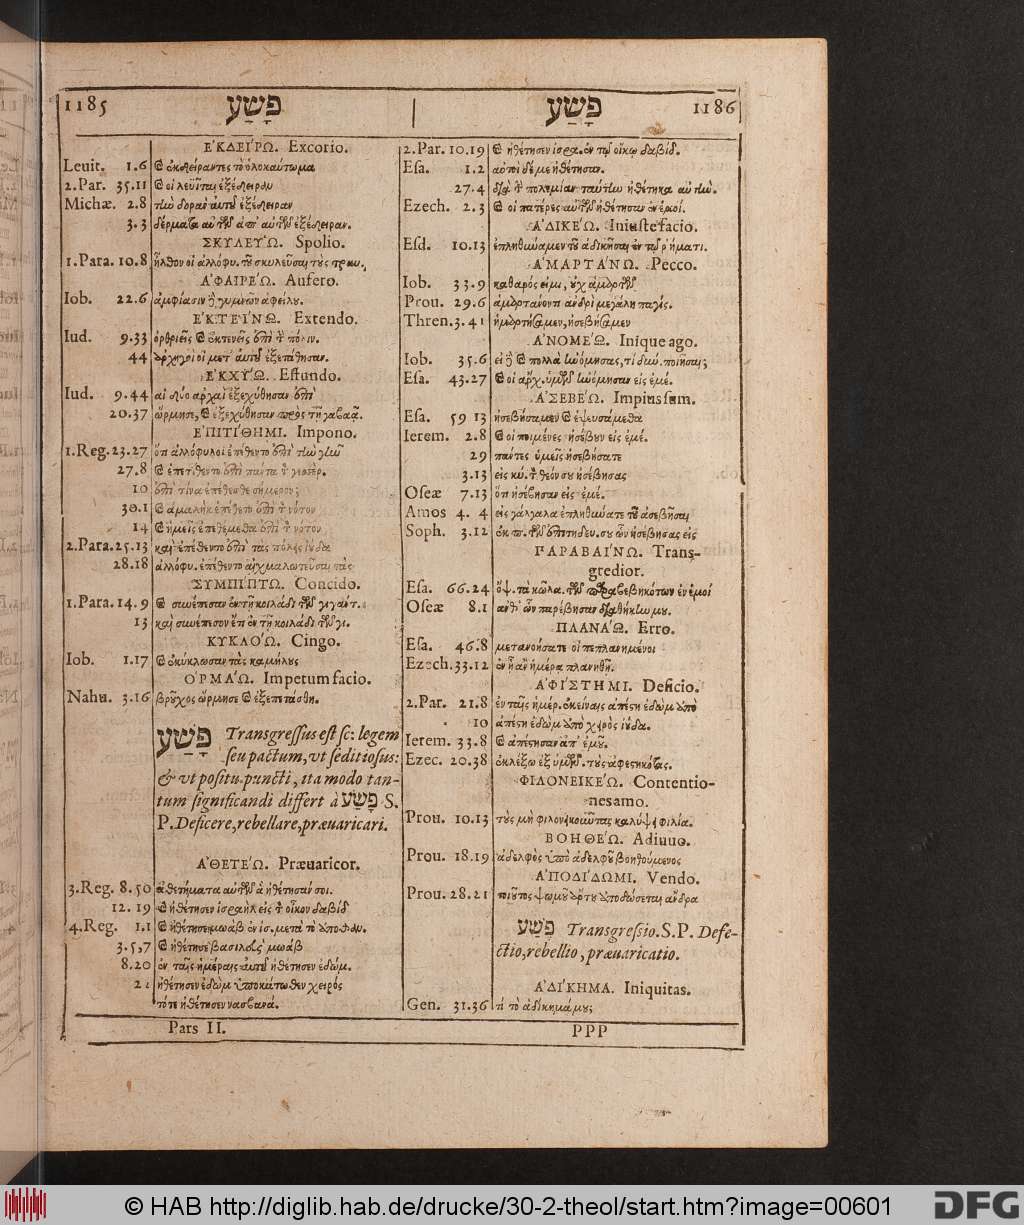 1185 פָּשַׁע
פָּשַׁע 1186
ἘΚΔΕΊΡΩ. Excorio.
Leuit. 1.6 καὶ ἐκδείραντες τὸ ὁλοκαύτωμα
2.Par. 35.11 καὶ οἱ λευῖται ἐξέδειραν
Michæ. 2.8 τὴν δορὰν αὐτοῦ ἐξέδειραν
3.3 δέρματα αὐτῶν ἀπ' αὐτῶν ἐξέδειραν.
ΣΚΥΛΕΎΩ. Spolio.
1.Para. 10.8 ἦλθον οἱ ἀλλόφυ. τοῦ σκυλεῦσαι τοὺς τραυ.
ἈΦΑΙΡΈΩ. Aufero.
Iob. 22.6 ἀμφίασιν δὲ γυμνῶν ἀφείλου.
ἘΚΤΕΊΝΩ. Extendo.
Iud. 9.33 ὀρθριεῖς καὶ ἐκτενεῖς ἐπὶ τὴν πόλιν.
44 ἀρχηγοὶ οἱ μετ' αὐτοῦ ἐξετάθησαν.
ἘΚΧΎΩ. Effundo.
Iud. 9.44 αἱ δύο ἀρχαὶ ἐξεχύθησαν ἐπὶ
20.37 ὥρμησε, καὶ ἐξεχύθησαν πρὸς τῇ γαβαᾷ.
ἘΠΙΤΊΘΗΜΙ. Impono.
1.Reg. 23.27 ὅτι ἀλλόφυλοι ἐπέθεντο ἐπὶ τὴν γῆν
27.8 καὶ ἐπετίθεντο ἐπὶ πάντα τὸν γεσσέρ.
10 ἐπὶ τίνα ἐπέθεσθε σήμερον;
30.1 καὶ ἀμαλὴκ ἐπέθετο ἐπὶ τὸν νότον
14 καὶ ἡμεῖς ἐπεθέμεθα ἐπὶ τὸν νότον
2.Para. 25.13 καὶ ἐπέθεντο ἐπὶ τὰς πόλεις ἰούδα
28.18 ἀλλόφυ. ἐπέθεντο αἰχμαλωτεῦσαι τὰς
ΣΥΜΠΊΠΤΩ. Concido.
1.Para. 14.9 καὶ συνέπεσαν ἐν τῇ κοιλάδι τῶν γιγάντ.
13 καὶ συνέπεσον ἔτι ἐν τῇ κοιλάδι τῶν γι.
ΚΥΚΛΌΩ. Cingo.
Iob. 1.17 καὶ ἐκύκλωσαν τὰς καμήλους
ὉΡΜΆΩ. Impetum facio.
Nahu. 3.16 βροῦχος ὥρμησε καὶ ἐξεπετάσθη.
פָּשַׁע Transgressus est sc: legem
seu pactum, vt seditiosus:
& vt positu puncti, ita modo tan-
tum significandi differt à פָּשַׂע S.
P. Deficere, rebellare, præuaricari.
ἈΘΕΤΈΩ. Præuaricor.
3.Reg. 8.50 ἀθετήματα αὐτῶν ἃ ἠθέτησάν σοι.
12.19 καὶ ἠθέτησεν ἰσραὴλ εἰς τὸν οἶκον δαβίδ
4.Reg. 1.1 καὶ ἠθέτησε μωὰβ ἐν ἰσ. μετὰ τὸ ἀποθαν.
3.5,7 καὶ ἠθέτησε βασιλεὺς μωάβ
8.20 ἐν ταῖς ἡμέραις αὐτοῦ ἠθέτησεν ἐδώμ.
21 ἠθέτησεν ἐδὼμ ὑποκάτωθεν χειρὸς
τότε ἠθέτησεν
2.Par. 10.19 καὶ ἠθέτησεν ἰσρα. ἐν τῷ οἴκῳ δαβίδ.
Esa. 1.2 αὐτοὶ δέ με ἠθέτησαν.
27.4 διὰ τὴν πολεμίαν ταύτην ἠθέτηκα αὐτήν.
Ezech. 2.3 καὶ οἱ πατέρες αὐτῶν ἠθέτησαν ἐν ἐμοί.
ἈΔΙΚΈΩ. Iniuste facio.
Esd. 10.13 ἐπληθύναμεν τοῦ ἀδικῆσαι ἐν τῷ ῥήματι.
ἉΜΑΡΤΆΝΩ. Pecco.
Iob. 33.9 καθαρός εἰμι, οὐχ ἁμαρτῶν
Prou. 29.6 ἁμαρτάνοντι ἀνδρὶ μεγάλη παγίς.
Thren. 3.41 ἡμαρτήσαμεν, ἠσεβήσαμεν
ἈΝΟΜΈΩ. Inique ago.
Iob. 35.6 εἰ δὲ καὶ πολλὰ ἠνόμησας, τί δύν. ποιῆσαι;
Esa. 43.27 καὶ οἱ ἄρχ. ὑμῶν ἠνόμησαν εἰς ἐμέ.
ἈΣΕΒΈΩ. Impius sum.
Esa. 59 13 ἠσεβήσαμεν καὶ ἐψευσάμεθα
Ierem. 2.8 καὶ οἱ ποιμένες ἠσέβουν εἰς ἐμέ.
29 πάντες ὑμεῖς ἠσεβήσατε
3.13 εἰς κύ. τὸν θεόν σου ἠσέβησας
Oseæ 7.13 ὅτι ἠσέβησαν εἰς ἐμέ.
Amos 4. 4 εἰς γάλγαλα ἐπληθύνατε τοῦ ἀσεβῆσαι
Soph. 3.12 ἐκ π. τῶν ἐπιτηδευ. σου ὧν ἠσέβησας εἰς
ΠΑΡΑΒΑΊΝΩ. Trans-
gredior.
Esa. 66.24 ὄψ. τὰ κῶλα. τῶν παραβεβηκότων ἐν ἐμοί
Oseæ 8.1 ἀνθ' ὧν παρέβησαν διαθήκην μου.
ΠΛΑΝΆΩ. Erro.
Esa. 46.8 μετανοήσατε οἱ πεπλανημένοι
Ezech. 33.12 ἐν ᾗ ἂν ἡμέρᾳ πλανηθῇ.
ἈΦΊΣΤΗΜΙ. Deficio.
2.Par. 21.8 ἐν ταῖς ἡμέρ. ἐκείναις ἀπέστη ἐδὼμ ἀπὸ
10 ἀπέστη ἐδὼμ ἀπὸ χειρὸς ἰούδα.
Ierem. 33.8 καὶ ἀπέστησαν ἀπ' ἐμοῦ.
Ezec. 20.38 ἐκλέξω ἐξ ὑμῶν. τοὺς ἀφεστηκότας.
ΦΙΛΟΝΕΙΚΈΩ. Contentio-
nesamo.
Prou. 10.13 τοὺς μὴ φιλονεικοῦντας καλύψει φιλία.
ΒΟΗΘΈΩ. Adiuuo.
Prou. 18.19 ἀδελφὸς ὑπὸ ἀδελφοῦ βοηθούμενος
ἈΠΟΔΊΔΩΜΙ. Vendo.
Prou. 28.21 τοιοῦτος ψωμοῦ ἄρτου ἀποδώσεται ἄνδρα
פֶּשַׁע Transgressio. S.P. Defe-
ctio, rebellio, præuaricatio.
ἈΔΊΚΗΜΑ. Iniquitas.
Gen. 31.36 τί τὸ ἀδίκημά μου;
Pars II. PPP
© HAB http://diglib.hab.de/drucke/30-2-theol/start.htm?image=00601
DFG